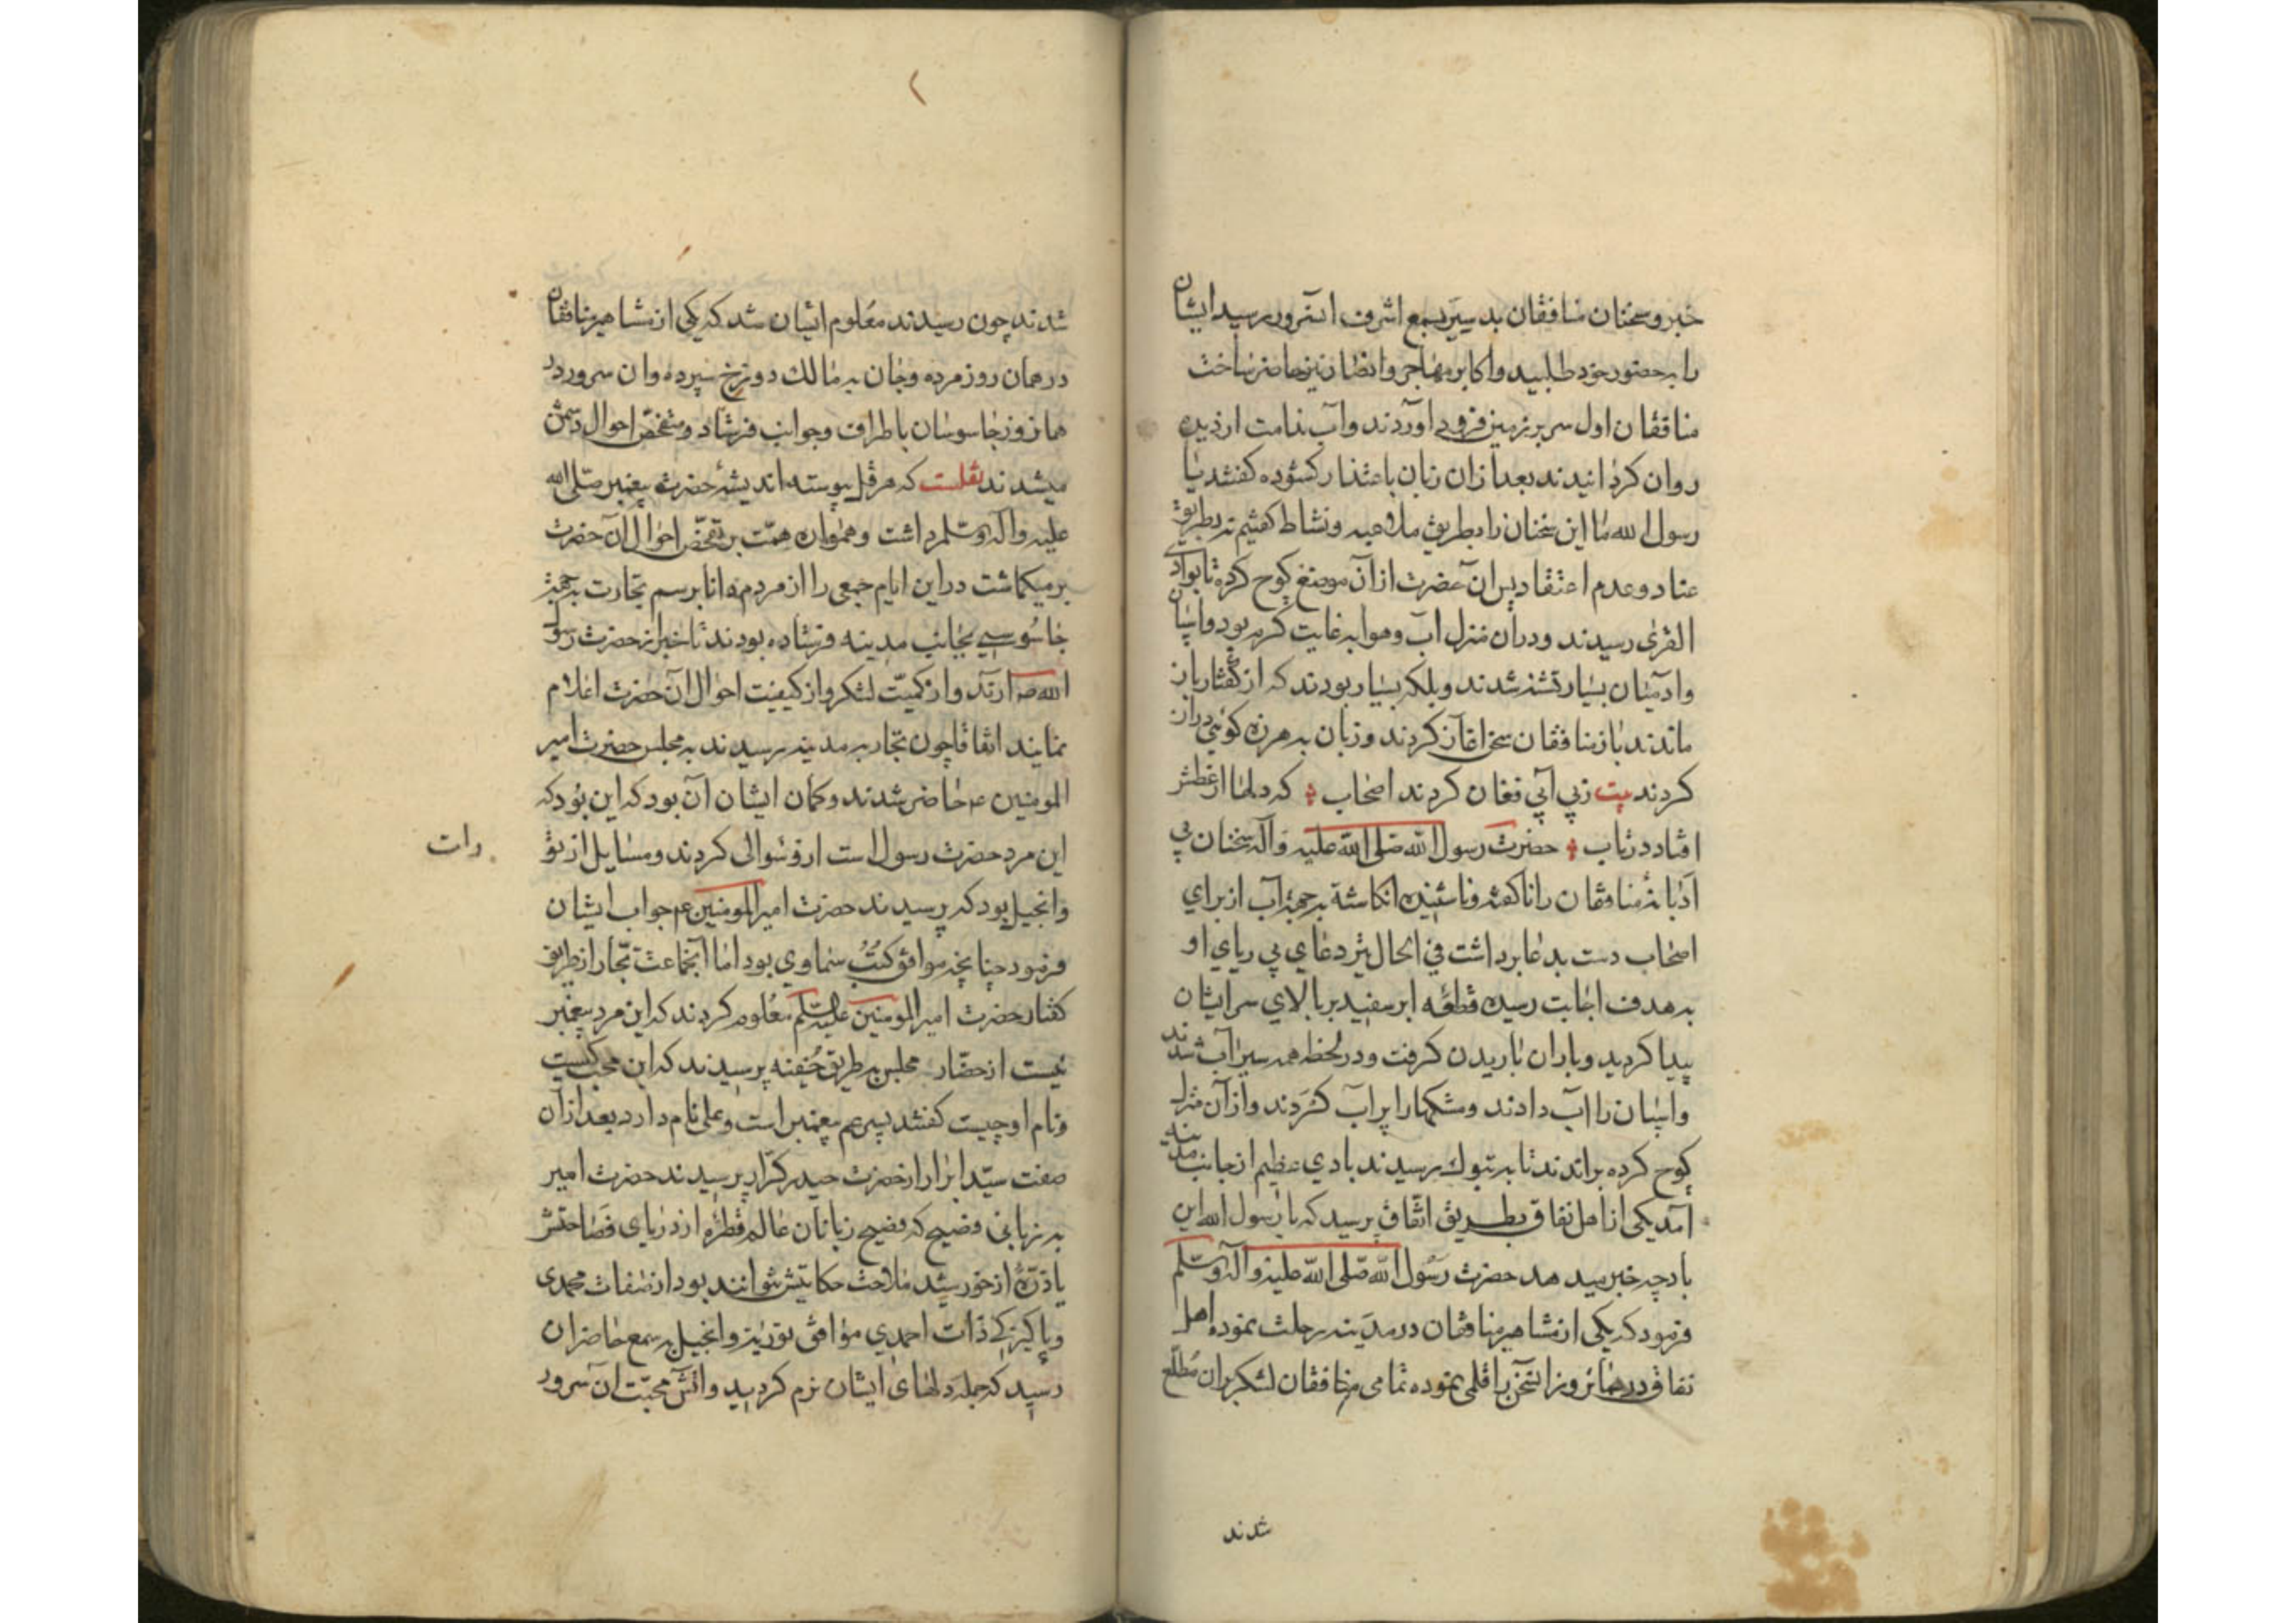 خبر و سخنان منافقان بد سیر بسمع اشرف آنسرور رسید ایشان
را بحضور خود طلبید و اکابر مهاجر و انصار نیز حاضر ساخت
منافقان اول سر بر زمین فرود آوردند و آب ندامت از دیده
روان کردانیدند بعد ازان زبان باعتذار کشوده کفتند یا
رسول الله ما این سخنان را بطریق ملاعبه و نشاط کفتیم نه بطریق
عناد و عدم اعتقاد پس آن حضرت از آن موضع کوچ کرده تا بوادی
القری رسیدند و دران منزل آب و هوا به غایت کرم بود و اسپان
و آدمیان بسیار تشنه شدند و بلکه بسیار بودند که از کفتار باز
ماندند باز منافقان سخن آغاز کردند و زبان به هرزه کوئی دراز
کردند بیت ز بی آبی فغان کردند اصحاب که دلها از عطش
افتاد در تاب حضرت رسول الله صلی الله علیه و آله سخنان بی
ادبانهٔ منافقان را ناکفته و ناشنیده انکاشته به جههٔ آب از برای
اصحاب دست بدعا برداشت فی الحال تیر دعای بی ریای او
به هدف اجابت رسیده قطعهٔ ابر سفید بر بالای سر ایشان
پیدا کردید و باران باریدن کرفت و در لحظه همه سیرآب شدند
و اسپان را آب دادند و مشکها را پر آب کردند و از آن منزل
کوچ کرده براندند تا به تبوک رسیدند بادی عظیم از جانب مدینه
آمد یکی از اهل نفاق بطریق اتفاق پرسید که یا رسول الله این
باد چه خبر میدهد حضرت رسول الله صلی الله علیه و آله وسلم
فرمود که یکی از مشاهیر منافقان در مدینه رحلت نموده اهل
نفاق در همانروز انسخن را قلمی نموده تمامی منافقان لشکر بران مطلع
شدند
شدند چون رسیدند معلوم ایشان شد که یکی از مشاهیر منافقان
در همان روز مرده و جان به مالک دوزخ سپرده و آن سرور در
همانروز جاسوسان باطراف و جوانب فرستاد و متفحص احوال دشمن
میشدند نقلست که هرقل پیوسته اندیشهٔ حضرت پیغمبر صلی الله
علیه و آله وسلم داشت و همواره همت بر تفحص احوال آن حضرت
بر میکماشت در این ایام جمعی را از مردم دانا برسم تجارت به جههٔ
جاسوسی بجانب مدینه فرستاده بودند تا خبر از حضرت رسول
الله ص آرند و از کمیت لشکر و از کیفیت احوال آن حضرت اعلام
نمایند اتفاقا چون تجار به مدینه رسیدند به مجلس حضرت امیر
المومنین ع حاضر شدند و کمان ایشان آن بود که این بود که
این مرد حضرت رسول است ازو سوالی کردند و مسایل از تو
رات
و انجیل بود که پرسیدند حضرت امیر المومنین ع جواب ایشان
فرمود چنانچه موافق کتب سماوی بود اما آنجماعت تجار از طریق
کفتار حضرت امیر المومنین علیه السلم معلوم کردند که این مرد پیغمبر
نیست از حضار مجلس به طریق خفیه پرسیدند که این محب کیست
و نام او چیست کفتند پسر عم پیغمبر است و علی نام دارد بعد از آن
صفت سید ابرار از حضرت حیدر کرار پرسیدند حضرت امیر
به زبانی فصیح که فصیح زبانان عالم قطرهٔ از دریای فصاحتش
یا ذرهٔ از خورشید ملاحت حکایتش نتوانند بود از صفات محمدی
و پاکیزکی ذات احمدی موافق توریة و انجیل به سمع حاضران
رسید که جمله دلهای ایشان نرم کردید و آتش محبت آن سرور